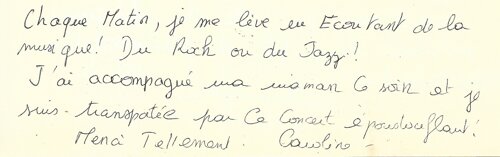 Chaque Matin, je me lève en Ecoutant de la
musique! Du Rock ou du Jazz!
J'ai accompagné ma maman ce soir et je
suis transpotée par ce Concert époustouflant!
Merci Tellement. Caroline